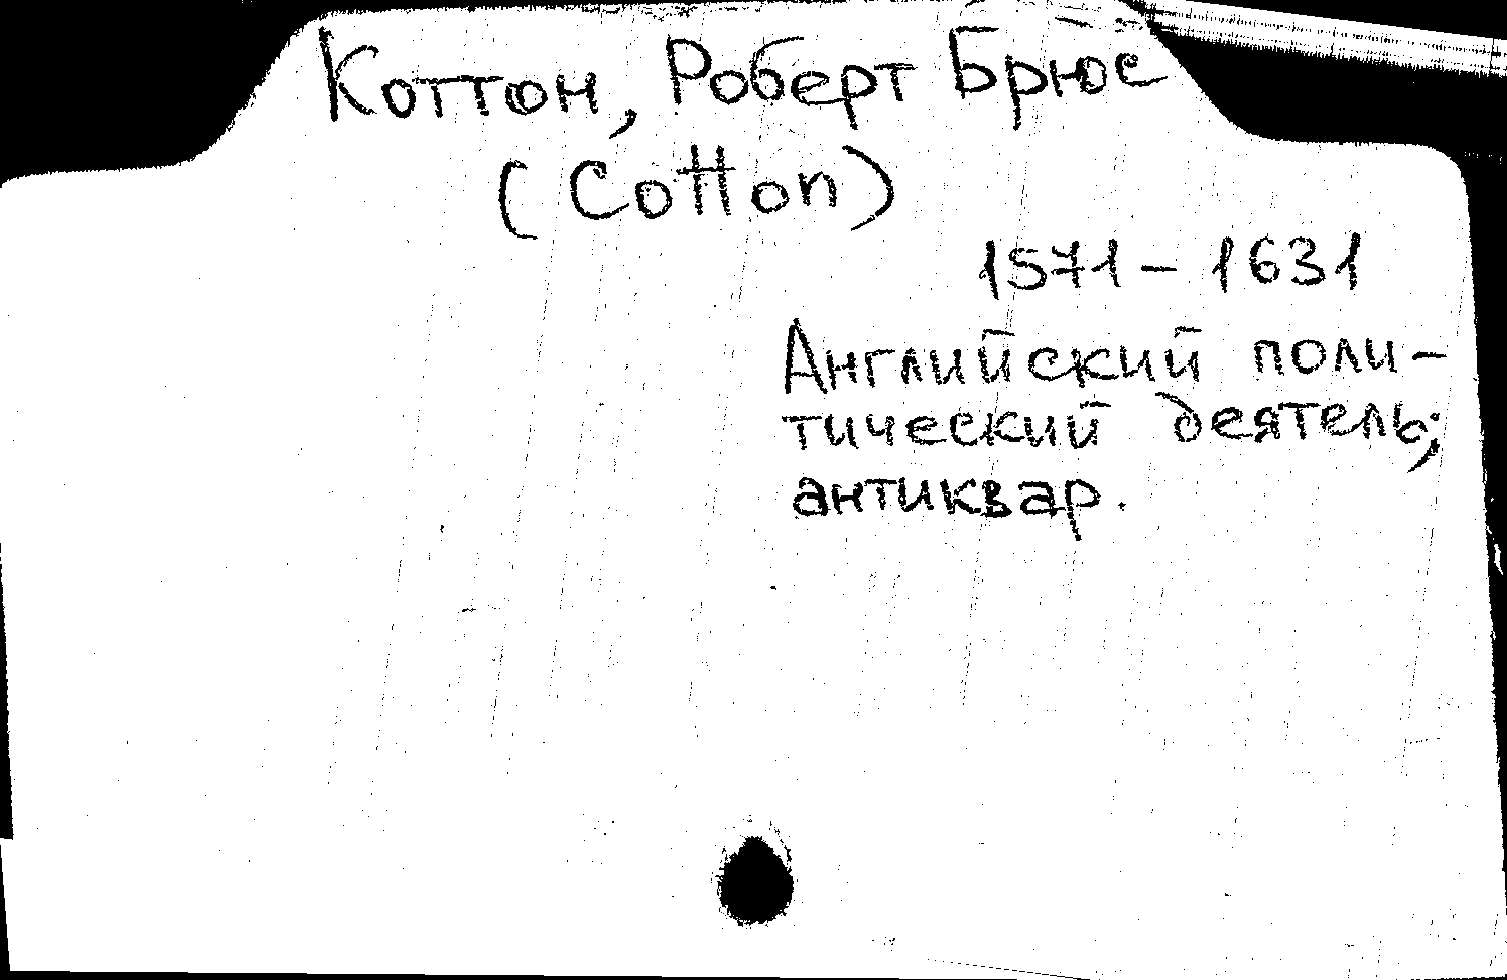 Коттон, Роберт Брюс
(Cotton)
1571 – 1631
Английский поли-
тический деятель;
антиквар.